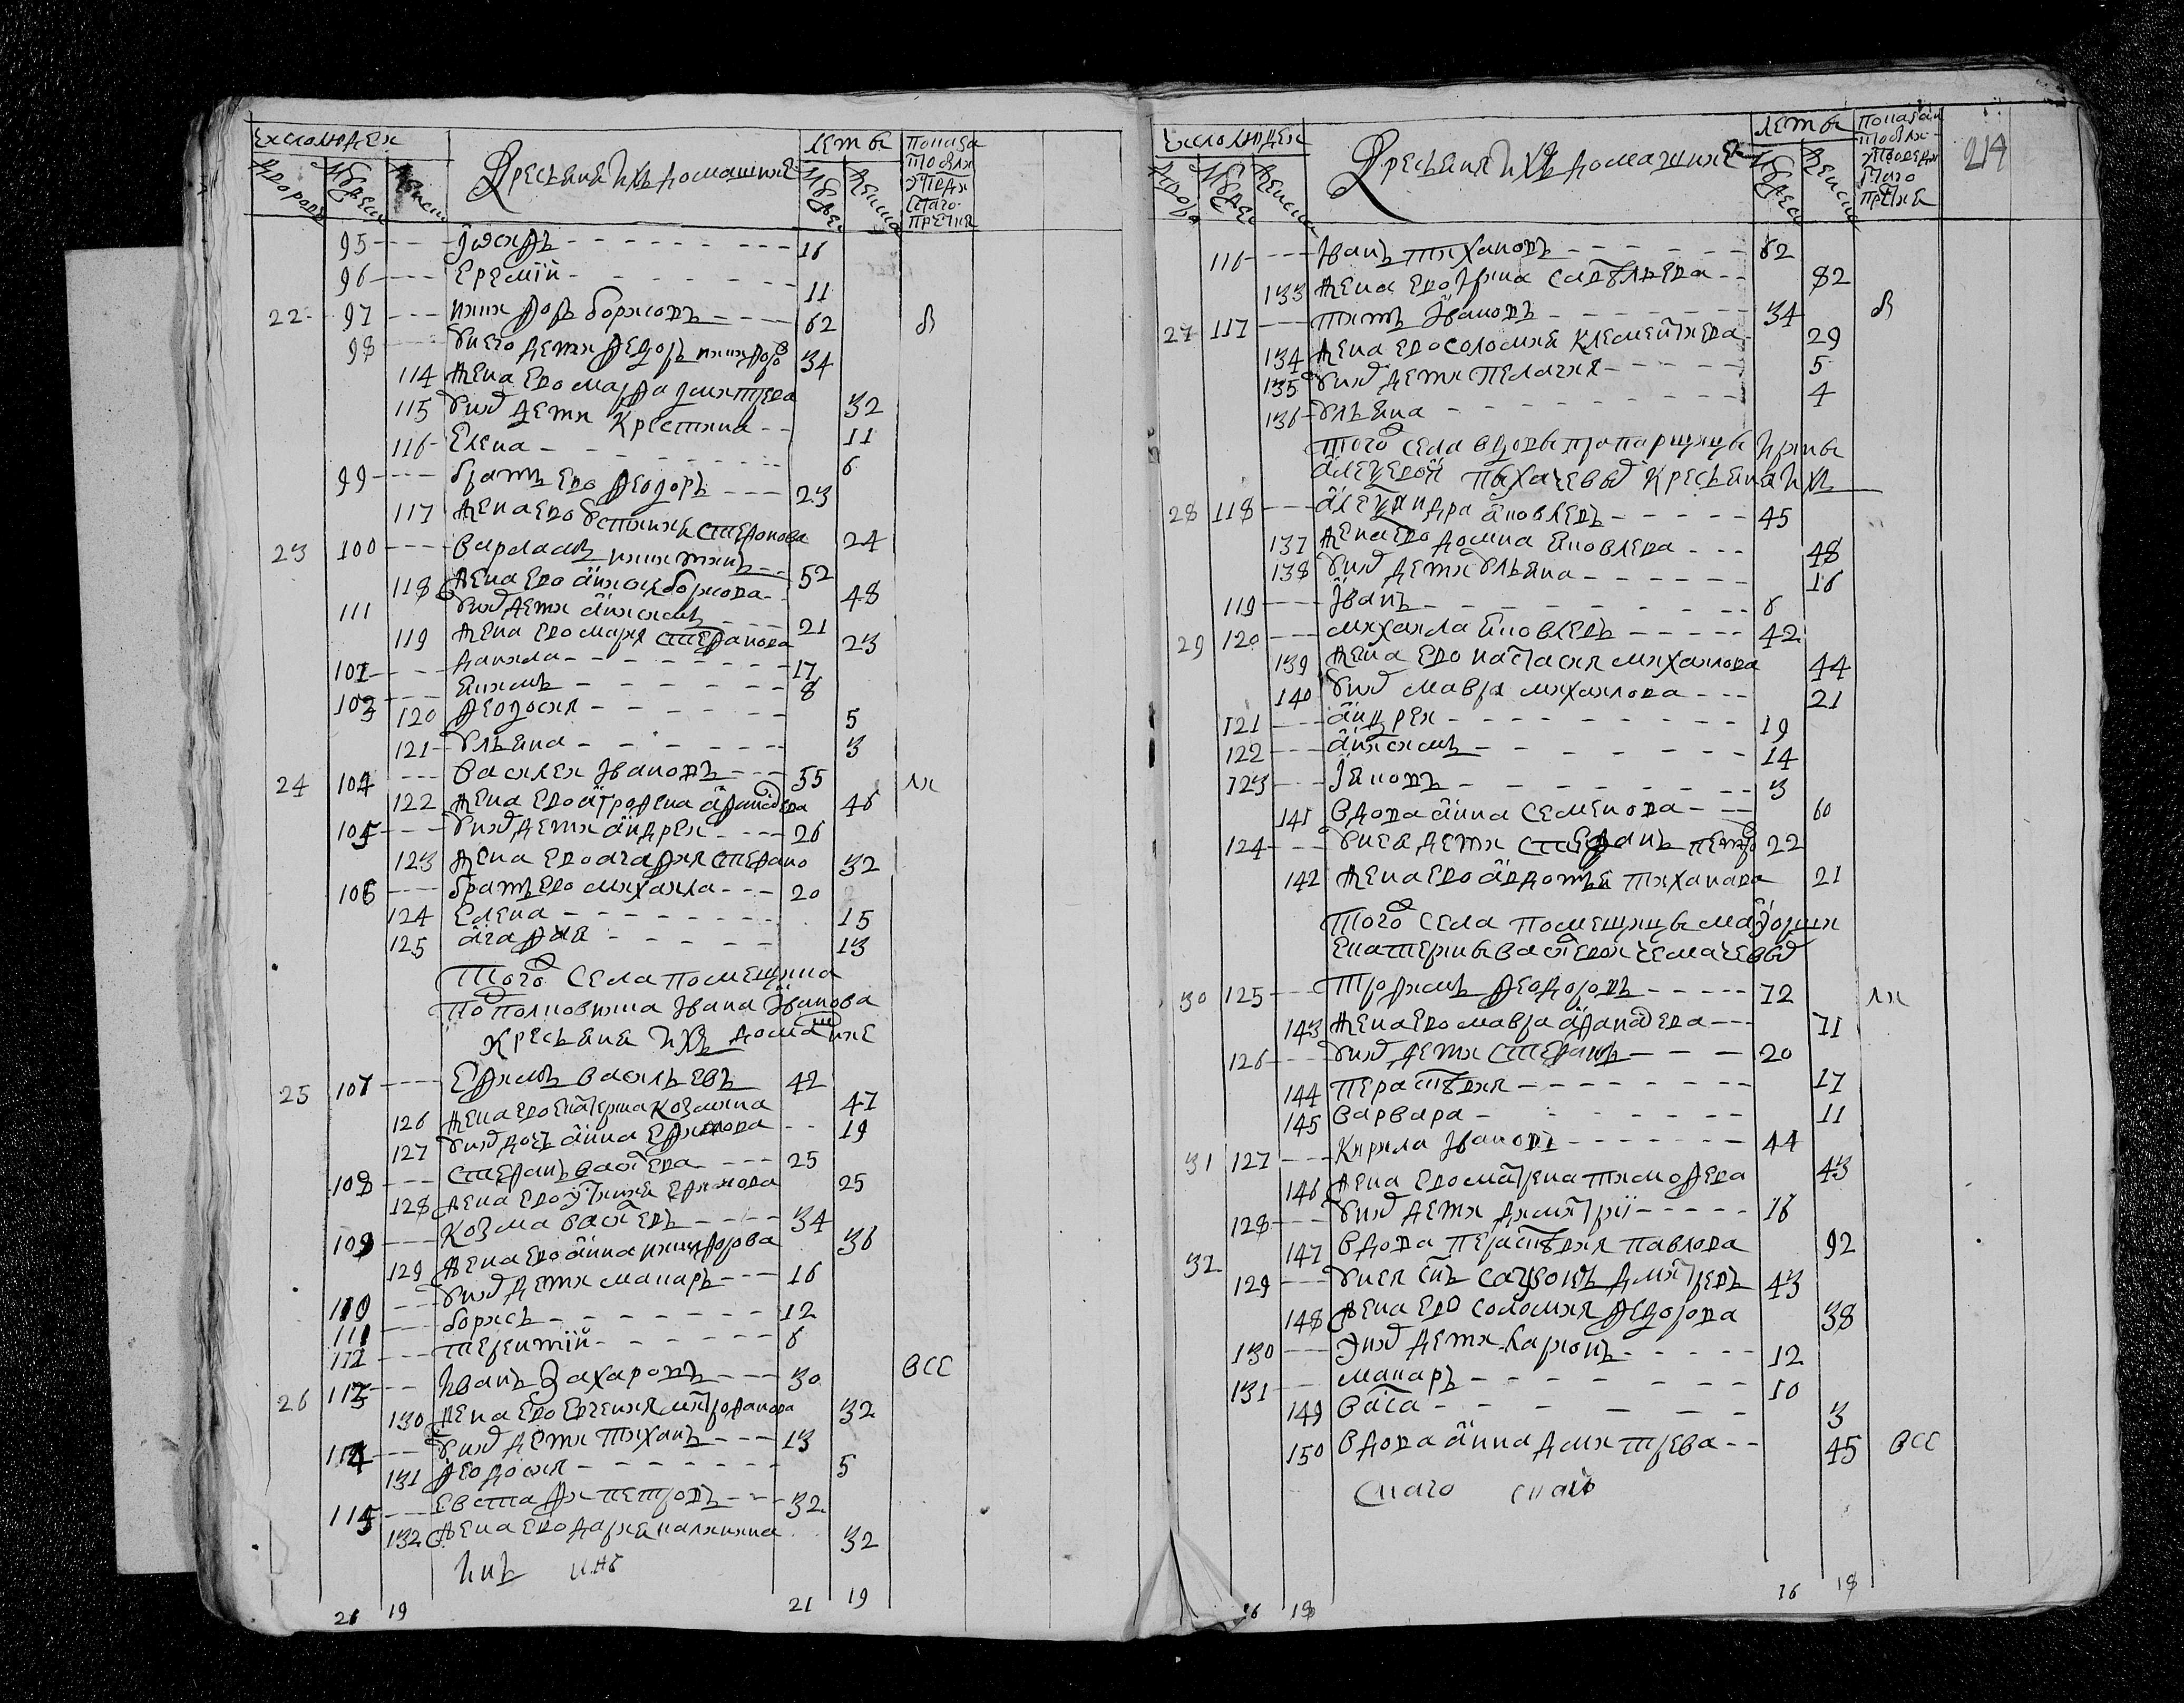 Крестьяня ихъ домашние
лѣтъ
95 Иосифъ 16
96 Еремий 11
22 97 Никифоръ Борисовъ 62
98 у него дети Федоръ Никифоро 34
114 жена ево Марфа Дмитрева 32
115 у них дети Крестина 11
116 Елена 6
99 братъ ево Феодоръ 23
117 жена ево Устиния Стефанова 24
23 100 Варламъ Никитинъ 52
118 жена ево Анисия Борисова 48
111 у них дети Анисимъ 21
119 жена ево Мария Стефанова 23
102 Данила 17
103 Якимъ 8
120 Феодосия 5
121 Ульяна 3
24 104 Василеи Ивановъ 55
122 жена ево Агрофена Афанасева 46
105 у них дети Андреи 26
123 жена ево Агафия Стефано 32
106 братъ ево Михаила 20
124 Елена 15
125 Агафия 13
Того села помещика
подполковника Ивана Иванова
крестьяня ихъ домашние
25 107 Ефимъ Васильевъ 42
126 жена ево Екатерина Козмина 47
127 у них дочь Анна Ефимова 19
108 Стефанъ Васильева 25
128 жена ево Устиния Ефимова 25
109 Козма Васильевъ 34
129 жена ево Анна Никифорова 36
110 у них дети Макаръ 16
111 Борисъ 12
112 Терентий 6
26 113 Иванъ Захаровъ 30 все
130 жена ево Евгения Митрофанова 32
114 у них дети Тиханъ 13
131 Феодосия 5
115 Евстафи Петровъ 32
132 жена ево Дария Калинина 32
21 19 21 19
Крестьяня ихъ домашние
лѣтъ
214
116 Иванъ Тихановъ 62
133 жена ево Ирина Савельева 82
27 117 Титъ Ивановъ 34
134 жена ево Соломия Клементиева 29
135 у них дети Пелагия 5
136 Ульяна 4
Того села вдовы прапарщицы Ирины
Алексеевой крестьяня ихъ
28 118 Александра Яковлевъ 45
137 жена ево Домна Яковлева 48
138 у них дети Ульяна 16
119 Иванъ 6
29 120 Михаила Яковлевъ 42
139 жена ево Настасия Михаилова 44
140 у них Мавра Михаилова 21
121 Андреи 19
122 Анисимъ 14
123 Яковъ 3
141 вдова Анна Семенова 60
124 у нее дети Стефанъ Петро 22
142 жена ево Авдотья Тиханова 21
Того села помещицы маиорши
Екатерины Васильевои
30 125 Трофимъ Феодоровъ 72
143 жена ево Мавра Афанасева 71
126 у них дети Стефанъ 20
144 Перасковия 17
145 Варвара 11
31 127 Кирила Ивановъ 44
146 жена ево Матрена Тимофева 43
128 у них дети Димитрий 16
32 147 вдова Перасковия Павлова 92
129 у нея сынъ Самсонъ Дмитревъ 43
148 жена ево Соломия Федорова 38
130 у них дети Ларионъ 12
131 Макаръ 10
149 Васа 3
150 вдова Анна Дмитрева 45 все
16 18 16 18